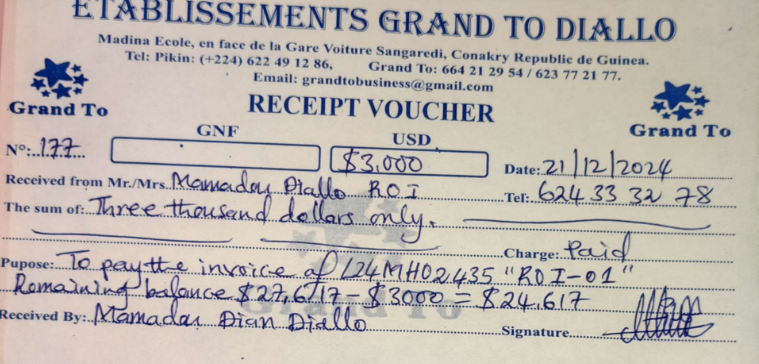 ETABLISSEMENTS GRAND TO DIALLO
Madina Ecole, en face de la Gare Voiture Sangaredi, Conakry Republic de Guinea.
Tel: Pikin: (+224) 622 49 12 86, Grand To: 664 21 29 54 / 623 77 21 77.
Email: grandtobusiness@gmail.com
Grand To RECEIPT VOUCHER Grand To
GNF USD
N°:..177... $3.000 Date: 21/12/2024
Received from Mr./Mrs. Mamadou Diallo ROI Tel: 624 33 32 78
The sum of: Three thousand dollars only.
Charge: Paid
Pupose: To pay the invoice of L24MH02435 "ROI-01"
Remaining balance $27,617 - $3000 = $24.617
Grand To
Received By: Mamadou Dian Diallo Signature